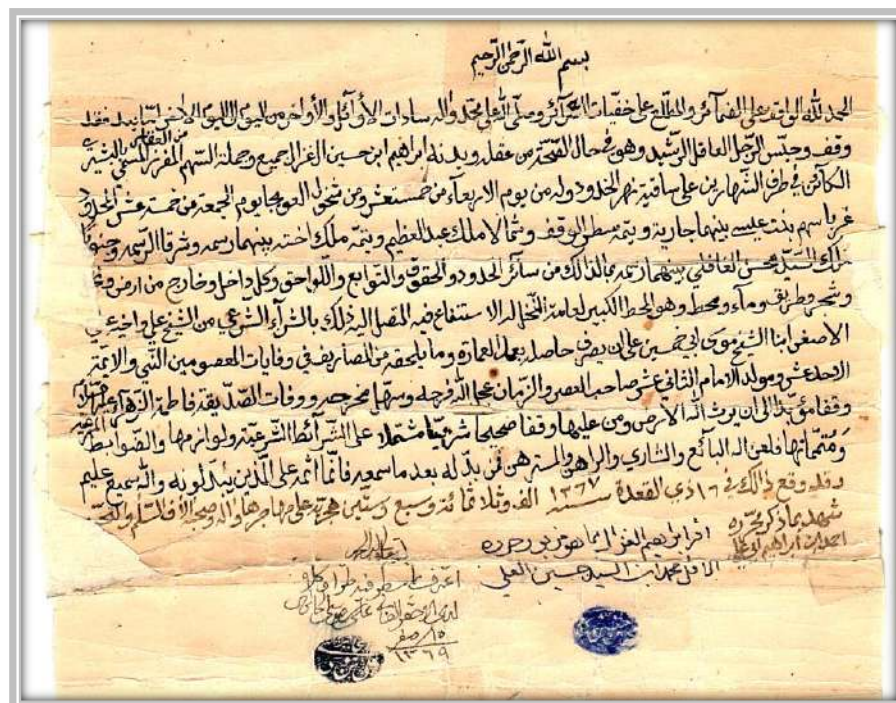 بسم الله الرحمن الرحيم
الحمد لله الواقف على الضمائر والمطلع على خفيات السرائر وصلى الله على محمد واله سادات الأوائل والأواخر من اليوم الى اليوم الاخر اما بعد فقد
وقف وحبس الرجل العاقل الرشيد وهو في حال الصحة من عقله وبدنه ابراهيم ابن حسين الغزال جميع وجملة السهم المفرز المسمى
من العقار
الكائن في طرف على ساقية نهر الخدود وله من يوم الاربعاء من خمستعشر ومن يوم الجمعة من خمسة عشر
غربا سهم بنت عيسى بينهما جارية ويتمه سطر الوقف وشمالا ملك عبد العظيم ويتمه ملك اخته بينهما رسمه وشرقا الرسمه وجنوبا
ملك السيد محسن الغافلي بينهما رسمه بما لذالك من سائر الحدود والحقوق والتوابع واللواحق وكل داخل وخارج من ارض
وشجر وطريق وماء ومحط وهو المحط الكبير لعامة النخل له الاستنفاع فيه المتصل اليه ذلك بالشراء الشرعي من الشيخ علي واخيه علي
الاصغر ابنا الشيخ موسى ابي خمسين على ان يصرف حاصله بعد العمارة وما يلحقه من المصاريف في وفايات المعصومين النبي والايمة
الاحدعشر ومولد الامام الثاني عشر صاحب العصر والزمان عجل الله فرجه وسهل مخرجه ووفات الصديقة فاطمة الزهراء
وقفا مؤبدا الى ان يرث الله الارض ومن عليها وقفا صحيحا شرعيا مشتملا على الشرائط الشرعية ولوازمها والضوابط المرعية
ومتمماتها فلعن الله البائع والشاري والراهن والمسترهن فمن بدله بعد ما سمعه فانما اثمه على الذين يبدلونه والله سميع عليم
وقد وقع ذالك في ١٦ ذي القعدة سنة ١٣٦٧ الف وثلاثمائة وسبع وستين هجرية على مهاجرها واله وصحبه الاف السلم والتحية
شهد بما ذكر محرره
احمد ابن ابراهيم
اقر ابراهيم الغزال بما هو مزبور وحرره
الاقل محمد ابن السيد حسين العلي
اعترف
لدى الاحقر
١٥ / صفر
١٣٦٩